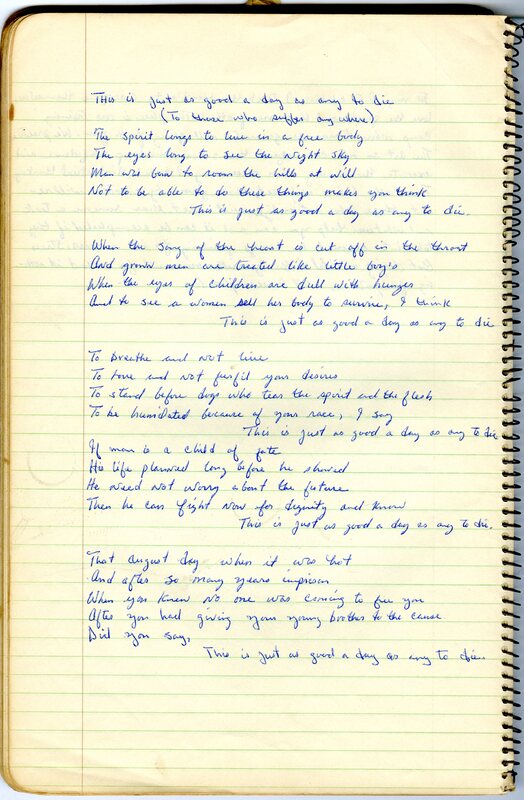 THis is just as good a day as any to die
(To those who suffer any where)
The spirit longs to live in a free body
The eyes long to see the night sky
Man was born to roam the hills at will
Not to be able to do these things makes you think
This is just as good a day as any to die.
When the song of the heart is cut off in the throat
And grown men are treated like little boy's
When the eyes of children are dull with hunger
And to see a women sell her body to survive, I think
This is just as good a day as any to die
To breathe and not live
To love and not fulfil your desires
To stand before dogs who tear the spirit and the flesh
To be humiliated because of your race, I say
This is just as good a day as any to die
If man is a child of fate
His life planned long before he showed
He need not worry about the future
Then he can fight now for dignity and know
This is just as good a day as any to die.
That august day when it was hot
And after so many years imprison
When you knew no one was coming to free you
After you had giving your young brother to the cause
Did you say,
This is just as good a day as any to die.